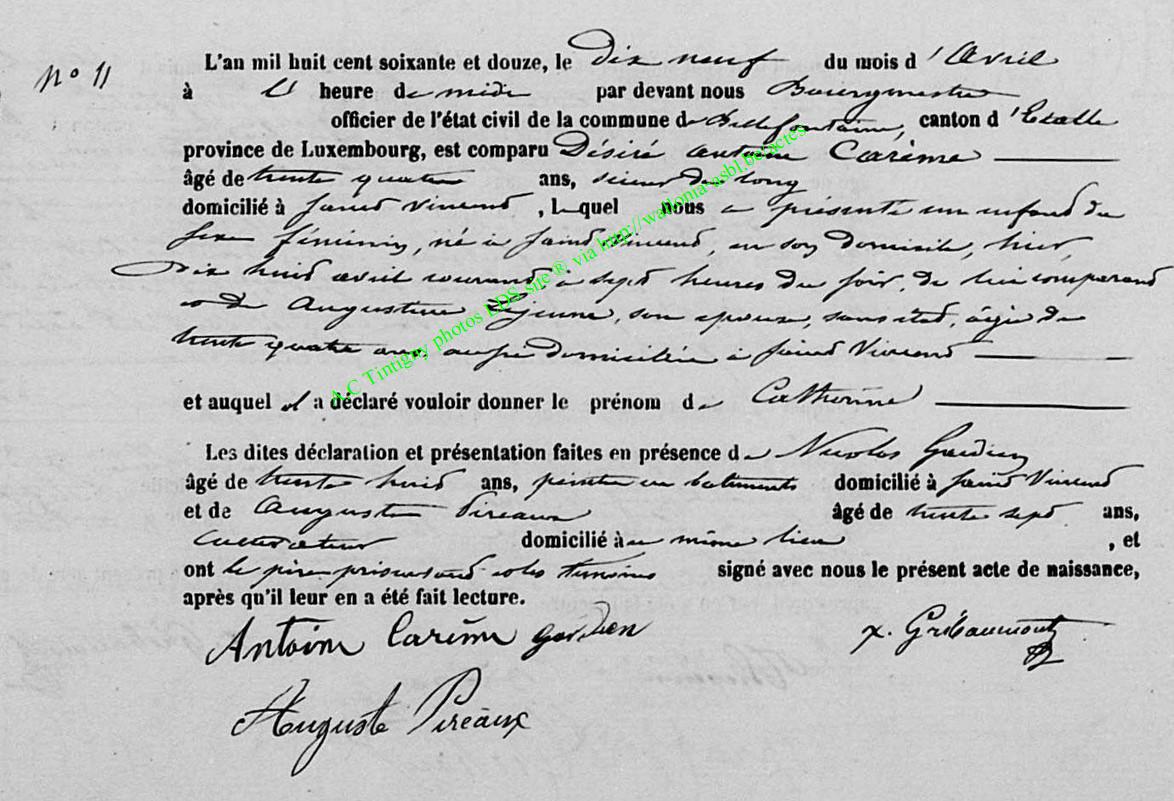 N° 11
L'an mil huit cent soixante et douze, le Dix neuf du mois d'Avril
à L' heure de midi par devant nous Bourgmestre
officier de l'état civil de la commune de Bellefontaine, canton d'Etalle
province de Luxembourg, est comparu Désiré Antoine Carême
âgé de trente quatre ans, scieur de long
domicilié à Saint Vincent, Lequel nous a présenté un enfant du
sexe féminin, né à Saint Vincent, en son domicile, hier
Dix huit avril courant, à sept heures du soir, de lui comparant
et de Augustine Lejeune, son épouse, sans état, âgée de
trente quatre ans aussi domiciliée à Saint Vincent
et auquel il a déclaré vouloir donner le prénom de Catherine
Les dites déclaration et présentation faites en présence de Nicolas Gardien
âgé de trente huit ans, peintre en batiments domicilié à Saint Vincent
et de Auguste Pireaux âgé de trente sept ans,
Cultivateur domicilié à même lieu, et
ont le père présentant et les témoins signé avec nous le présent acte de naissance,
après qu'il leur en a été fait lecture.
Antoine Carême Gardien x. Gribaumont
Auguste Pireaux
A.C Tintigny photos LDS site ® via http://wallonia-asbl.be/actes